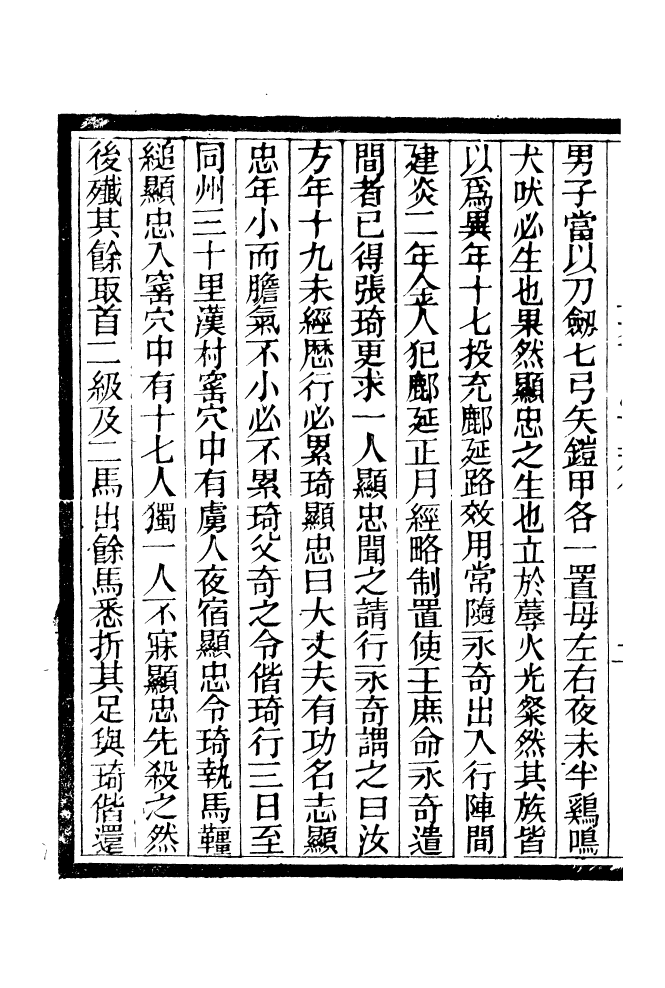 男子當以刀劒七弓矢鎧甲各一置母左右夜未半鷄鳴
犬吠必生也果然顯忠之生也立於蓐火光粲然其族皆
以爲異年十七投充鄜延路效用常隨永奇出入行陣間
建炎二年金人犯鄜延正月經略制置使王庶命永奇遣
間者已得張琦更求一人顯忠聞之請行永奇謂之曰汝
方年十九未經歴行必累琦顯忠曰大丈夫有功名志顯
忠年小而膽氣不小必不累琦父奇之令偕琦行三日至
同州三十里漢村窰穴中有虜人夜宿顯忠令琦執馬韁
縋顯忠入窰穴中有十七人獨一人不寐顯忠先殺之然
後殲其餘取首二級及二馬出餘馬悉折其足與琦偕還